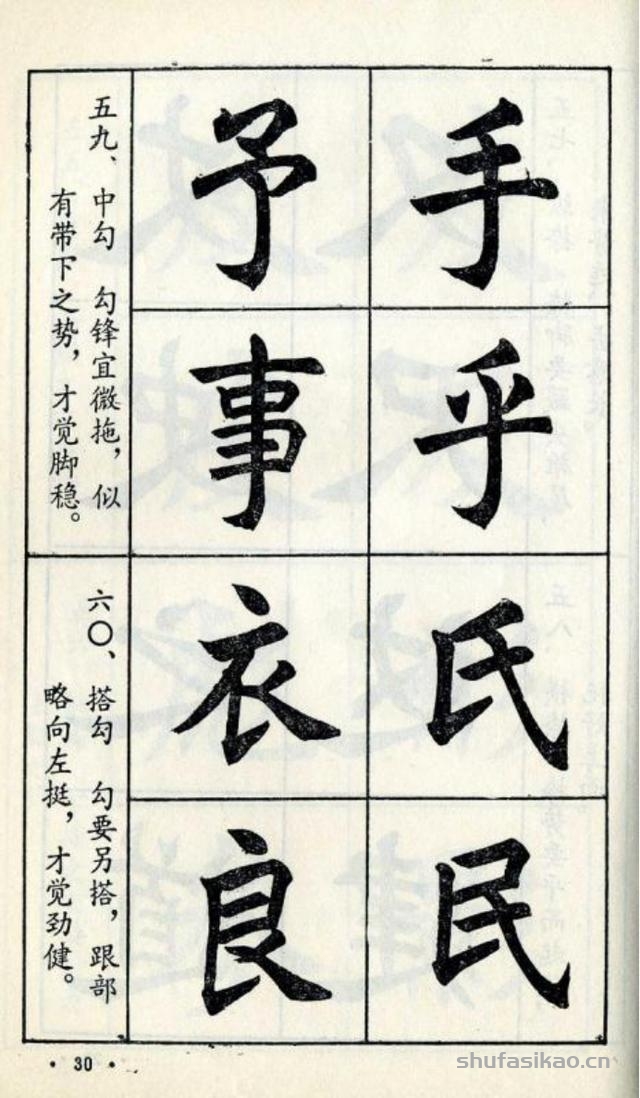 手
乎
氏
民
予
事
衣
良
五九、中勾 勾锋宜微拖，似
有带下之势，才觉脚稳。
六〇、搭勾 勾要另搭，跟部
略向左挺，才觉劲健。
· 30 ·
shufasikao.cn